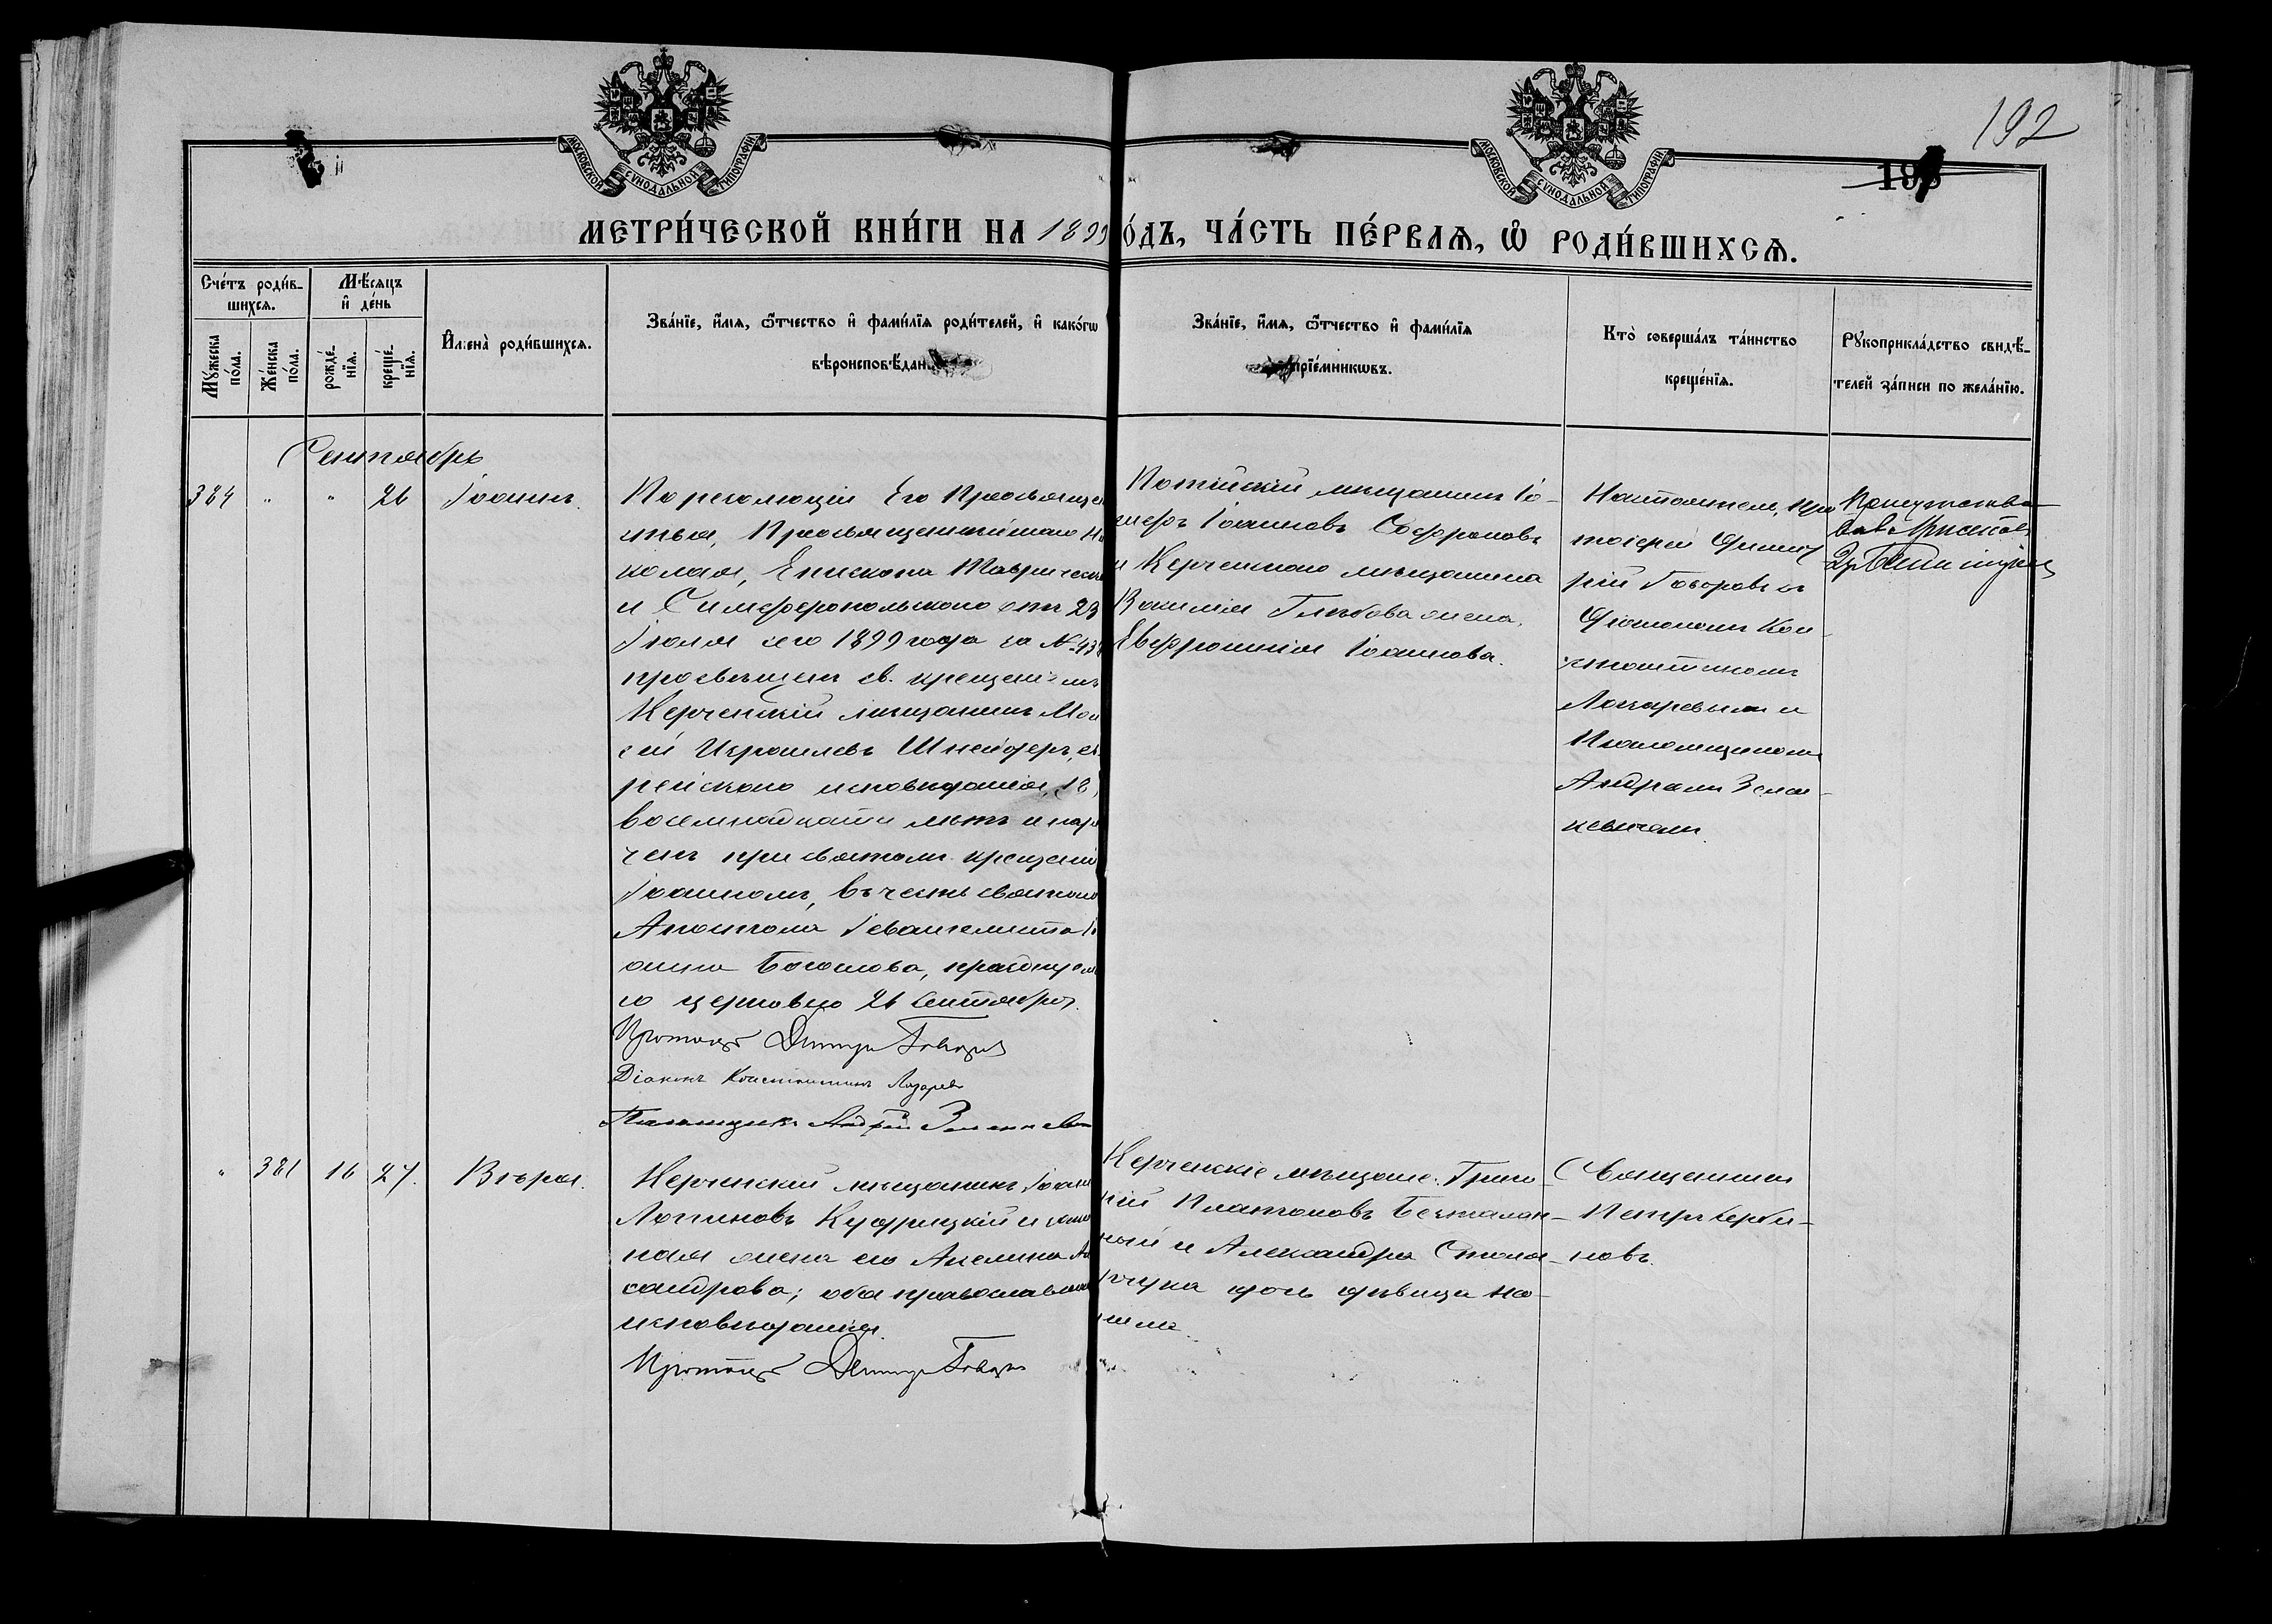 192
МОСКОВСКОЙ СУНОДАЛЬНОЙ ТИПОГРАФІИ
МОСКОВСКОЙ СУНОДАЛЬНОЙ ТИПОГРАФІИ
МЕТРИ́ЧЕСКОЙ КНИ́ГИ НА 1899
О́ДЪ, ЧА́СТЬ ПЕ́РВАѦ, Ѡ҆ РОДИ́ВШИХСѦ.
Сче́тъ роди́в-
шихсѧ.
Мѣ́сѧцъ
и҆ де́нь
Мꙋ́жеска
по́ла.
Же́нска
по́ла.
рожде́-
нїѧ.
креще́-
нїѧ.
И҆мена̀ роди́вшихсѧ.
Зва́нїе, и҆́мѧ, ѻ҆́тчество и҆ фами́лїѧ роди́телей, и҆ како́гѡ
вѣроисповѣ́дан
Зва́нїе, и҆́мѧ, ѻ҆́тчество и҆ фами́лїѧ
прїе́мникѡвъ.
Кто̀ соверша́лъ та́инство
креще́нїѧ.
Рꙋкоприкла́дство свидѣ́-
телей за́писи по жела́нїю.
Сентябрь
384 " " 26 Іоаннъ.
По резолюціи Его Преосвяще
нства, Преосвященнѣйшаго Ни
колая, Епископа Таврическа
и Симферопольскаго отъ 23
Іюля сего 1899 года за №
просвѣщенъ св. крещеніемъ
Керченскій мѣщанинъ Мои
сей Израилевъ Шнейдеръ, ев
рейскаго исповѣданія, 18,
восемнадцати лѣтъ и наре
ченъ при святомъ крещеніи
Іоанномъ, въ честь святаго
Апостола Іевангелиста І
оанна Богослова, празднуем
го церковью 26 Сентября.
Протоіерей Димитрій Говоровъ
Діаконъ Константинъ Лазарев
Псаломщикъ Андрей
Потійскій мѣщанинъ
Іоанновъ Софроновъ
и Керченскаго мѣщанина
Глѣбова жена,
Евфросинія Іоаннова.
Настоятель, про
тоіерей Димит
рій Говоровъ съ
Діакономъ Кон
стантиномъ
Лазаревымъ и
Псаломщикомъ
Андреемъ
кевичемъ.
" 381 16 27. Вѣра.
Керченскій мѣщанинъ Іоаннъ
Логиновъ и закон
ная жена его Акелина
сандрова; оба православнаго
исповѣданія.
Протоіерей Димитрій Говоровъ
Керченскіе мѣщане: Григо
рій Платоновъ Безталан
ный и Александра
дочь дѣвица
Священникъ
Петръ Серби-
новъ.